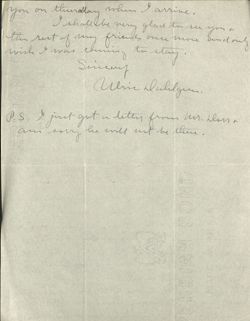 you on thursday when I arrive.
I shall be very glad to see you &
the rest of my friends once more and only
wish I was coming to stay.
Sincerely
Ulric Dahlgren.
P.S. I just got a letter from Mr.
am sorry he will not be there.